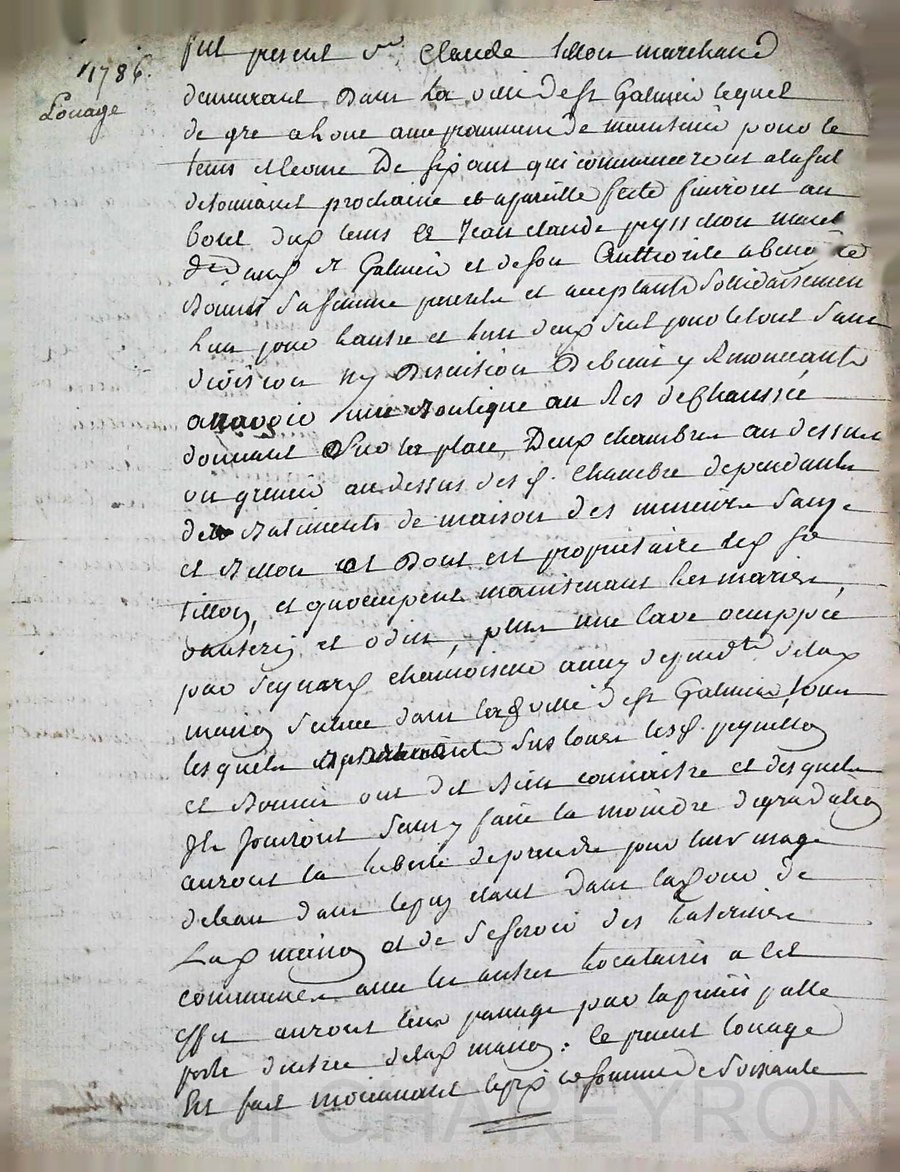 1786.
Louage
fut present Sr. Claude tillon marchand
demeurant dans la ville de st Galmier lequel
de gre a loue avec promesse de maintenir pour le
tems et terme De six ans qui commanceront a la fete
de toussaint prochaine et a pareille fete finiront au
bout dud tems a Jean claude peyssellon
st Galmier et de son authorité
Bonnet sa femme presente et acceptante solidairement
l'un pour l'autre et l'un deux seul pour le tout sans
division ny Discution Debiens y Renoncants
a Scavoir une Boutique au Rez de Chaussée
donnant Sur la place, Deux chambres au dessus
un grenier au dessus desd. Chambre dependants
des Batiments de maison des mineurs
et et Dont est proprietaire led Sr
tillon, et qu'occupent maintenant les maries
et odin, plus une cave occuppée
par chamoiseur de lad
maison Située dans lad ville de st Galmier, tous
lesquels lesd.
et Bonnet ont dit Bien connoitre et desquels
Ils Jouiront Sans y faire la moindre degradation
auront la liberte de prendre pour leur usage
de leau dans le puy etant dans la cour de
Lad maison et de Se Servir des laterines
communes avec les autres locataires a cet
effet auront leur passage par la petite
porte d'entrée de lad maison: le present louage
Est fait moiennant le prix et somme de Soixante
Pascal CHAREYRON